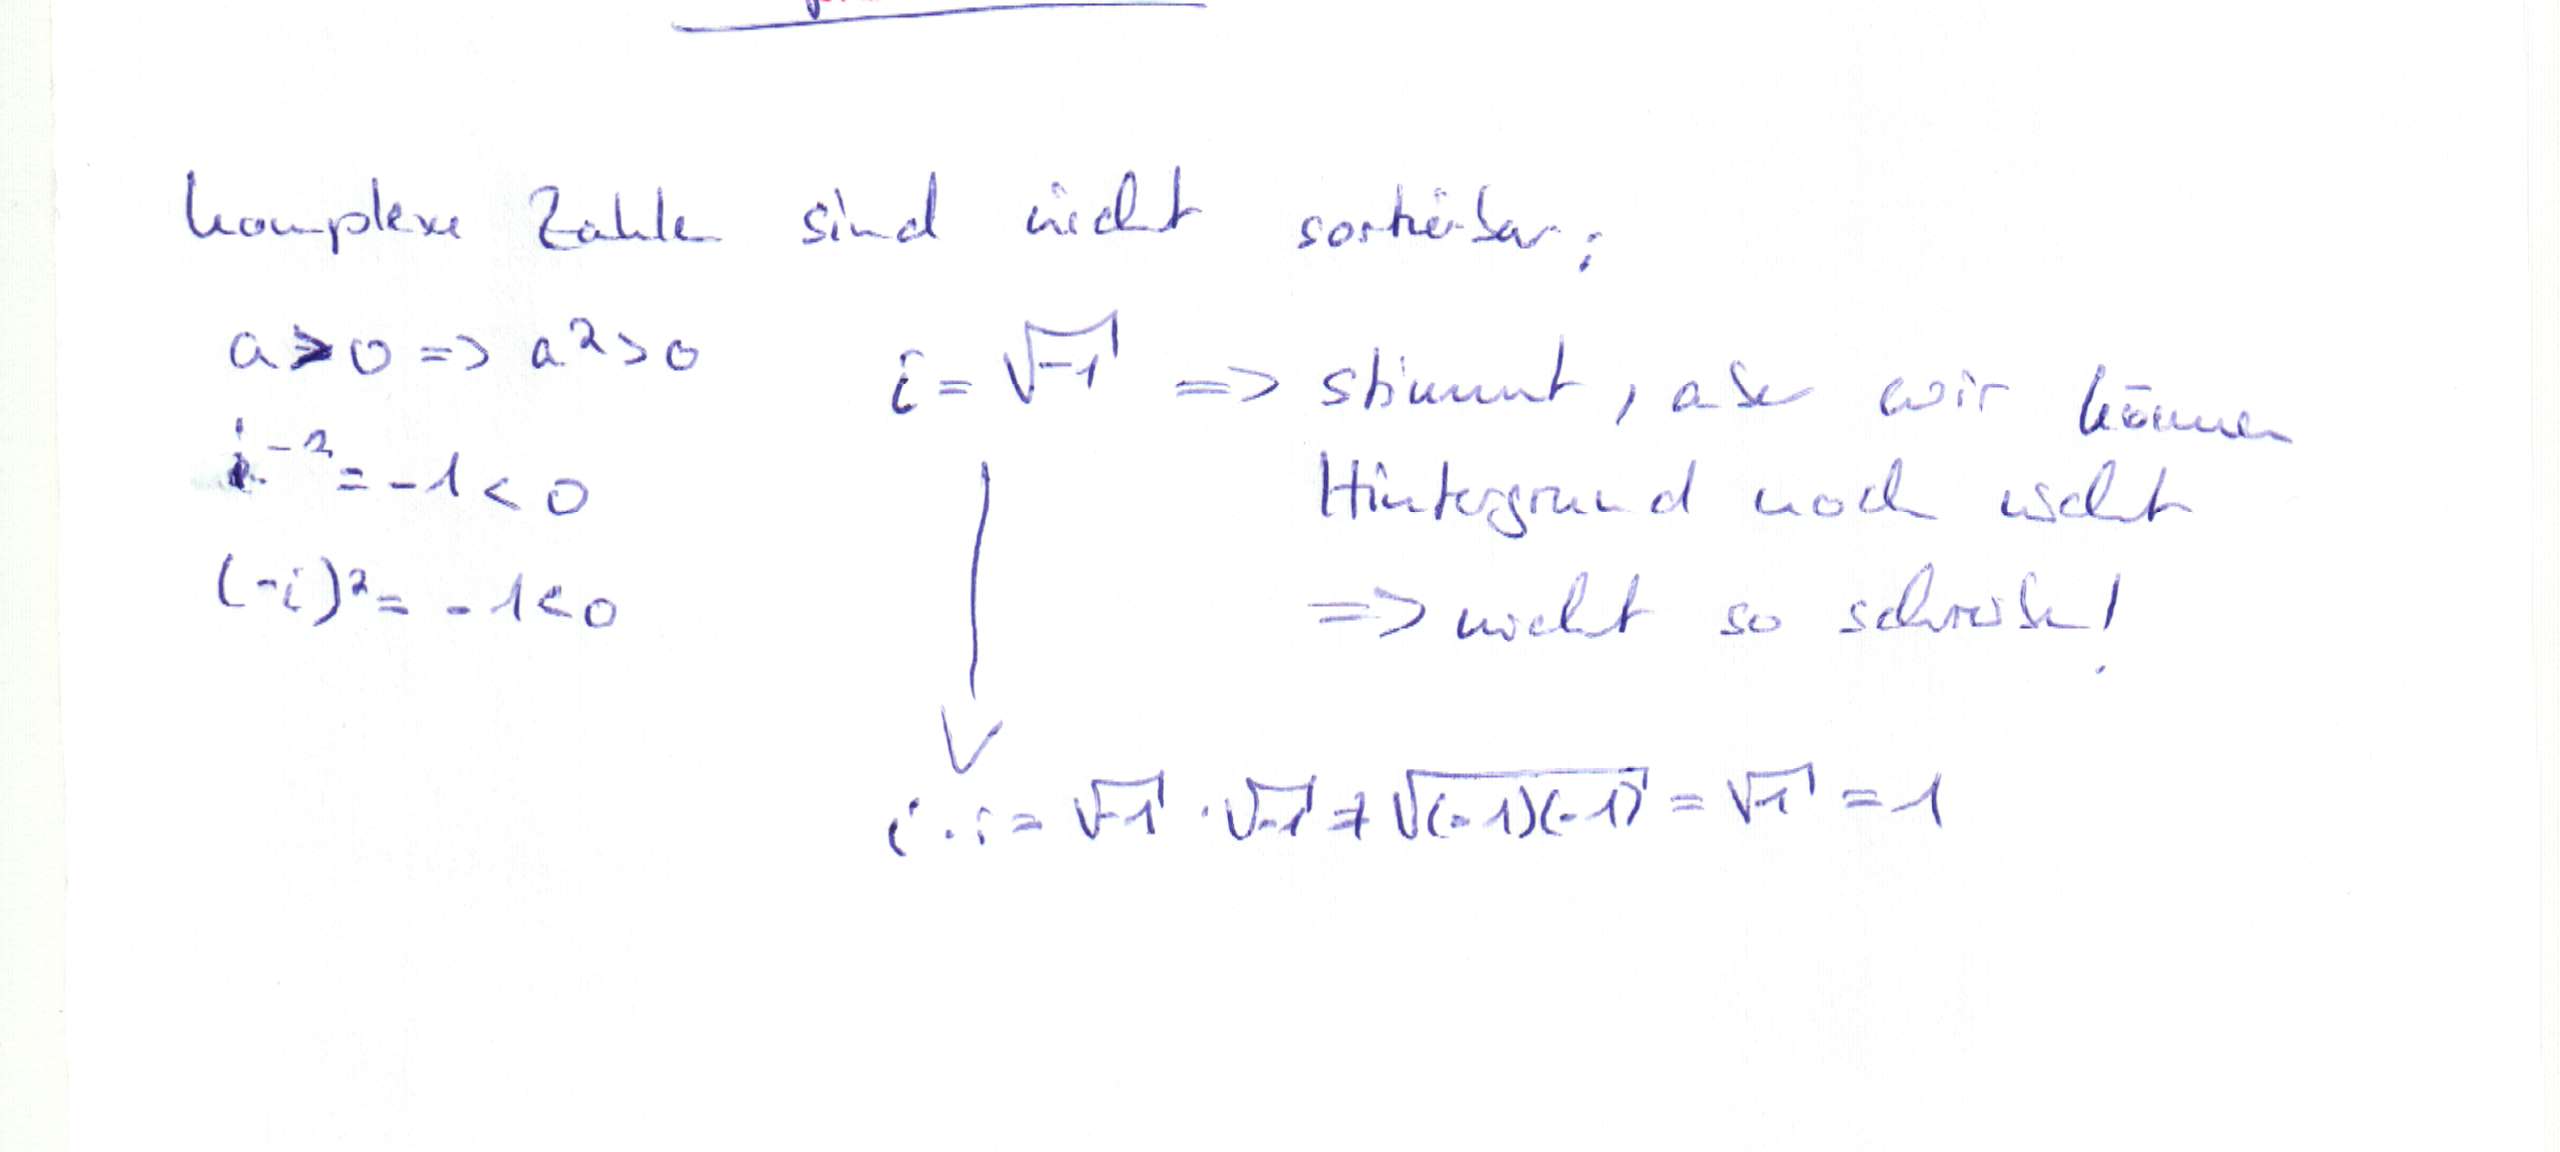 komplexe Zahlen sind nicht sortierbar:
a > 0 => a² > 0
i⁻² = -1 < 0
(-i)² = -1 < 0
i = √-1 => stimmt, aber wir können
Hintergrund noch nicht
=> nicht so schreiben!
i · i = √-1 · √-1 ≠ √(-1)(-1) = √1 = 1